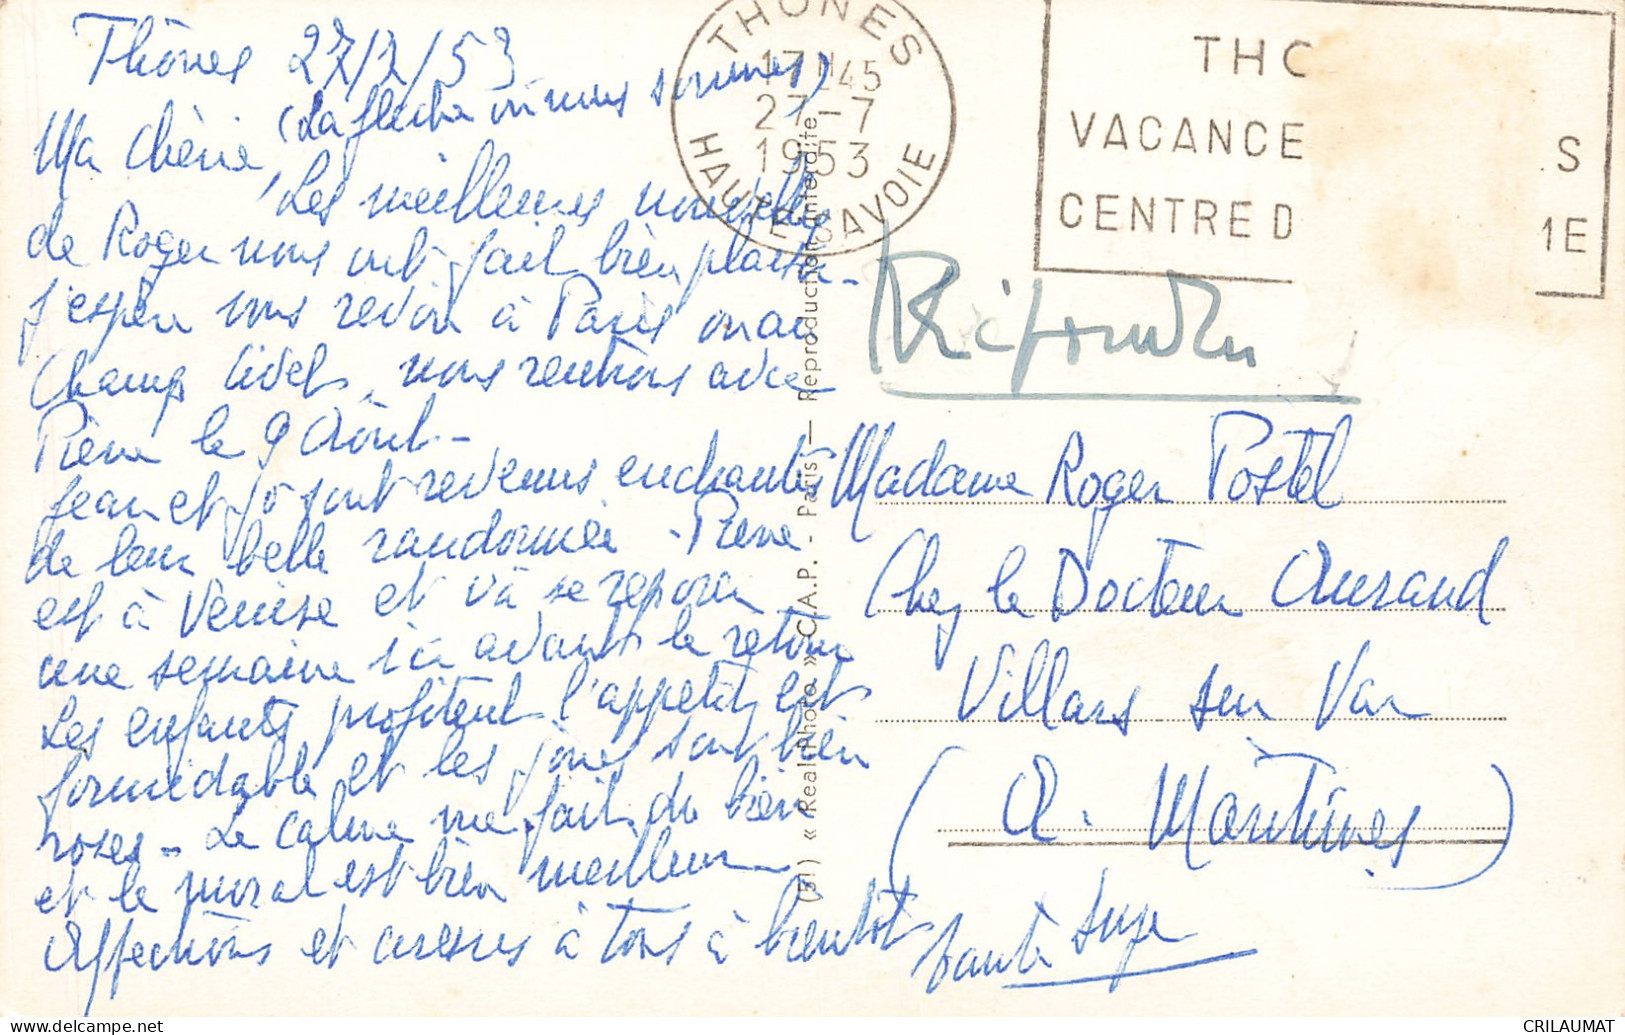 Thônes 27/7/53
(La flèche où nous sommes)
Ma chérie,
Les meilleures nouvelles
de Roger nous ont fait bien plaisir -
j'espère vous revoir à Paris ou au
Champ Civet, nous rentrons avec
Pierre le 9 Août -
Jean et Jo sont revenus enchantés
de leur belle randonnée - Pierre
est à Venise et va se reposer
une semaine ici avant le retour
Les enfants profitent l'appétit est
formidable et les joues sont bien
roses - Le calme me fait du bien
et le moral est bien meilleur
Affections et caresses à tous à bientôt
Tante Suze
THÔNES
17H45
27-7
1953
HAUTE SAVOIE
THO
VACANCE S
CENTRE D ME
Répondu
Madame Roger Postel
Chez le Docteur Aurand
Villars sur Var
(A. Maritimes)
(51) « Real-Photo » C.A.P. - Paris — Reproduction interdite
CRILAUMAT